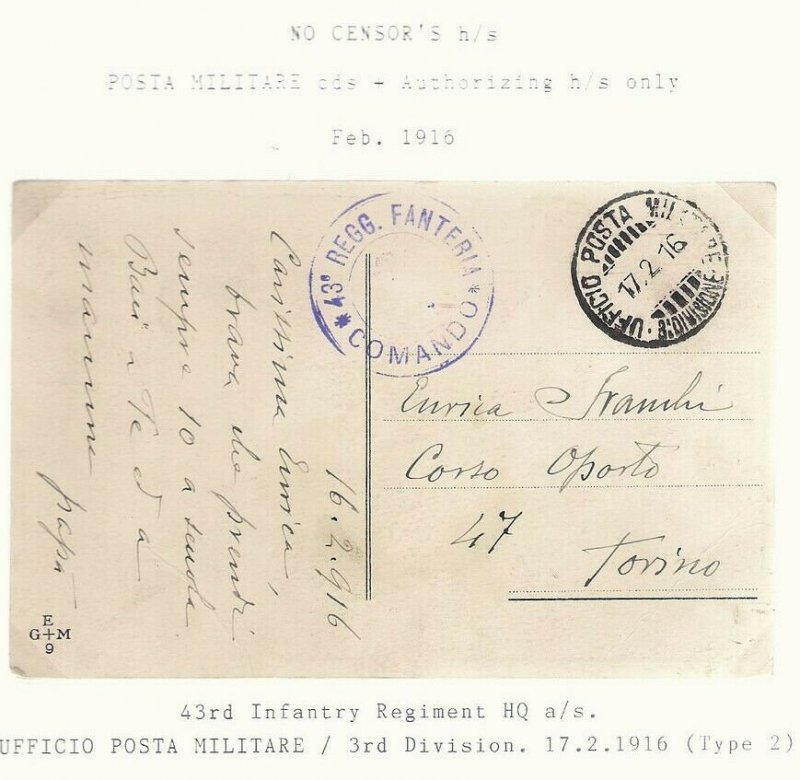 NO CENSOR'S h/s
POSTA MILITARE cds + Authorizing h/s only
Feb. 1916
* 43º REGG. FANTERIA *
COMANDO
UFFICIO POSTA MILITARE
DIVISIONE
17.2.16
16.2.916
Carissima Enrica,
brava che prendi
sempre 10 a scuola
Baci a Te e a
mamma
papà
Enrica
Corso Oporto
47
Torino
E
G+M
9
43rd Infantry Regiment HQ a/s.
UFFICIO POSTA MILITARE / 3rd Division. 17.2.1916 (Type 2)